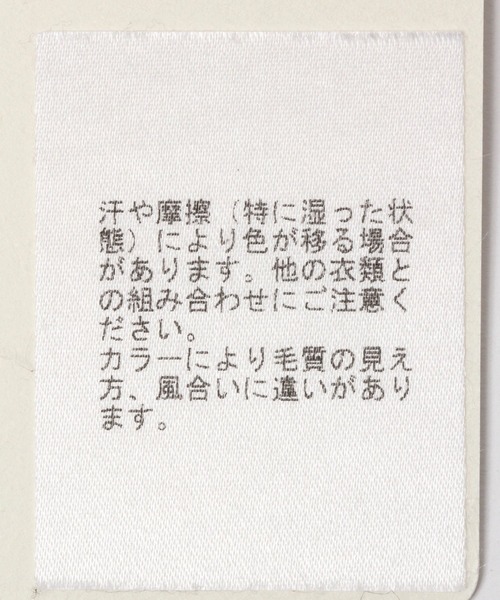 汗や摩擦（特に湿った状
態）により色が移る場合
があります。他の衣類と
の組み合わせにご注意く
ださい。
カラーにより毛質の見え
方、風合いに違いがあり
ます。